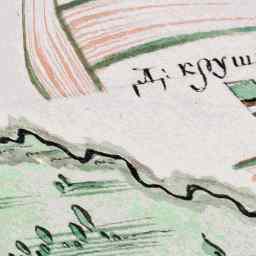 Д: круш